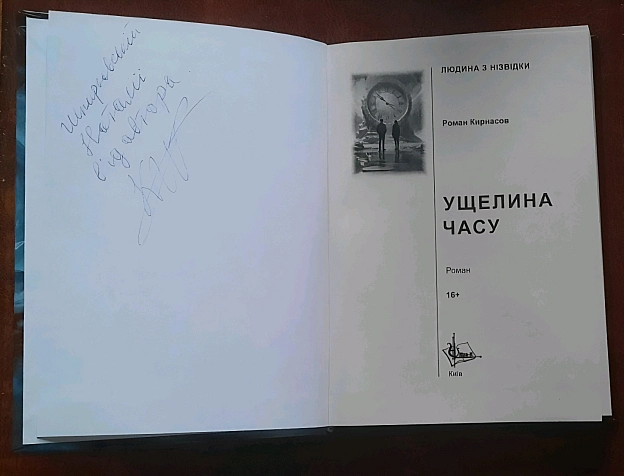 Наталії
від автора
ЛЮДИНА З НІЗВІДКИ
Роман Кирнасов
УЩЕЛИНА
ЧАСУ
Роман
16+
Київ